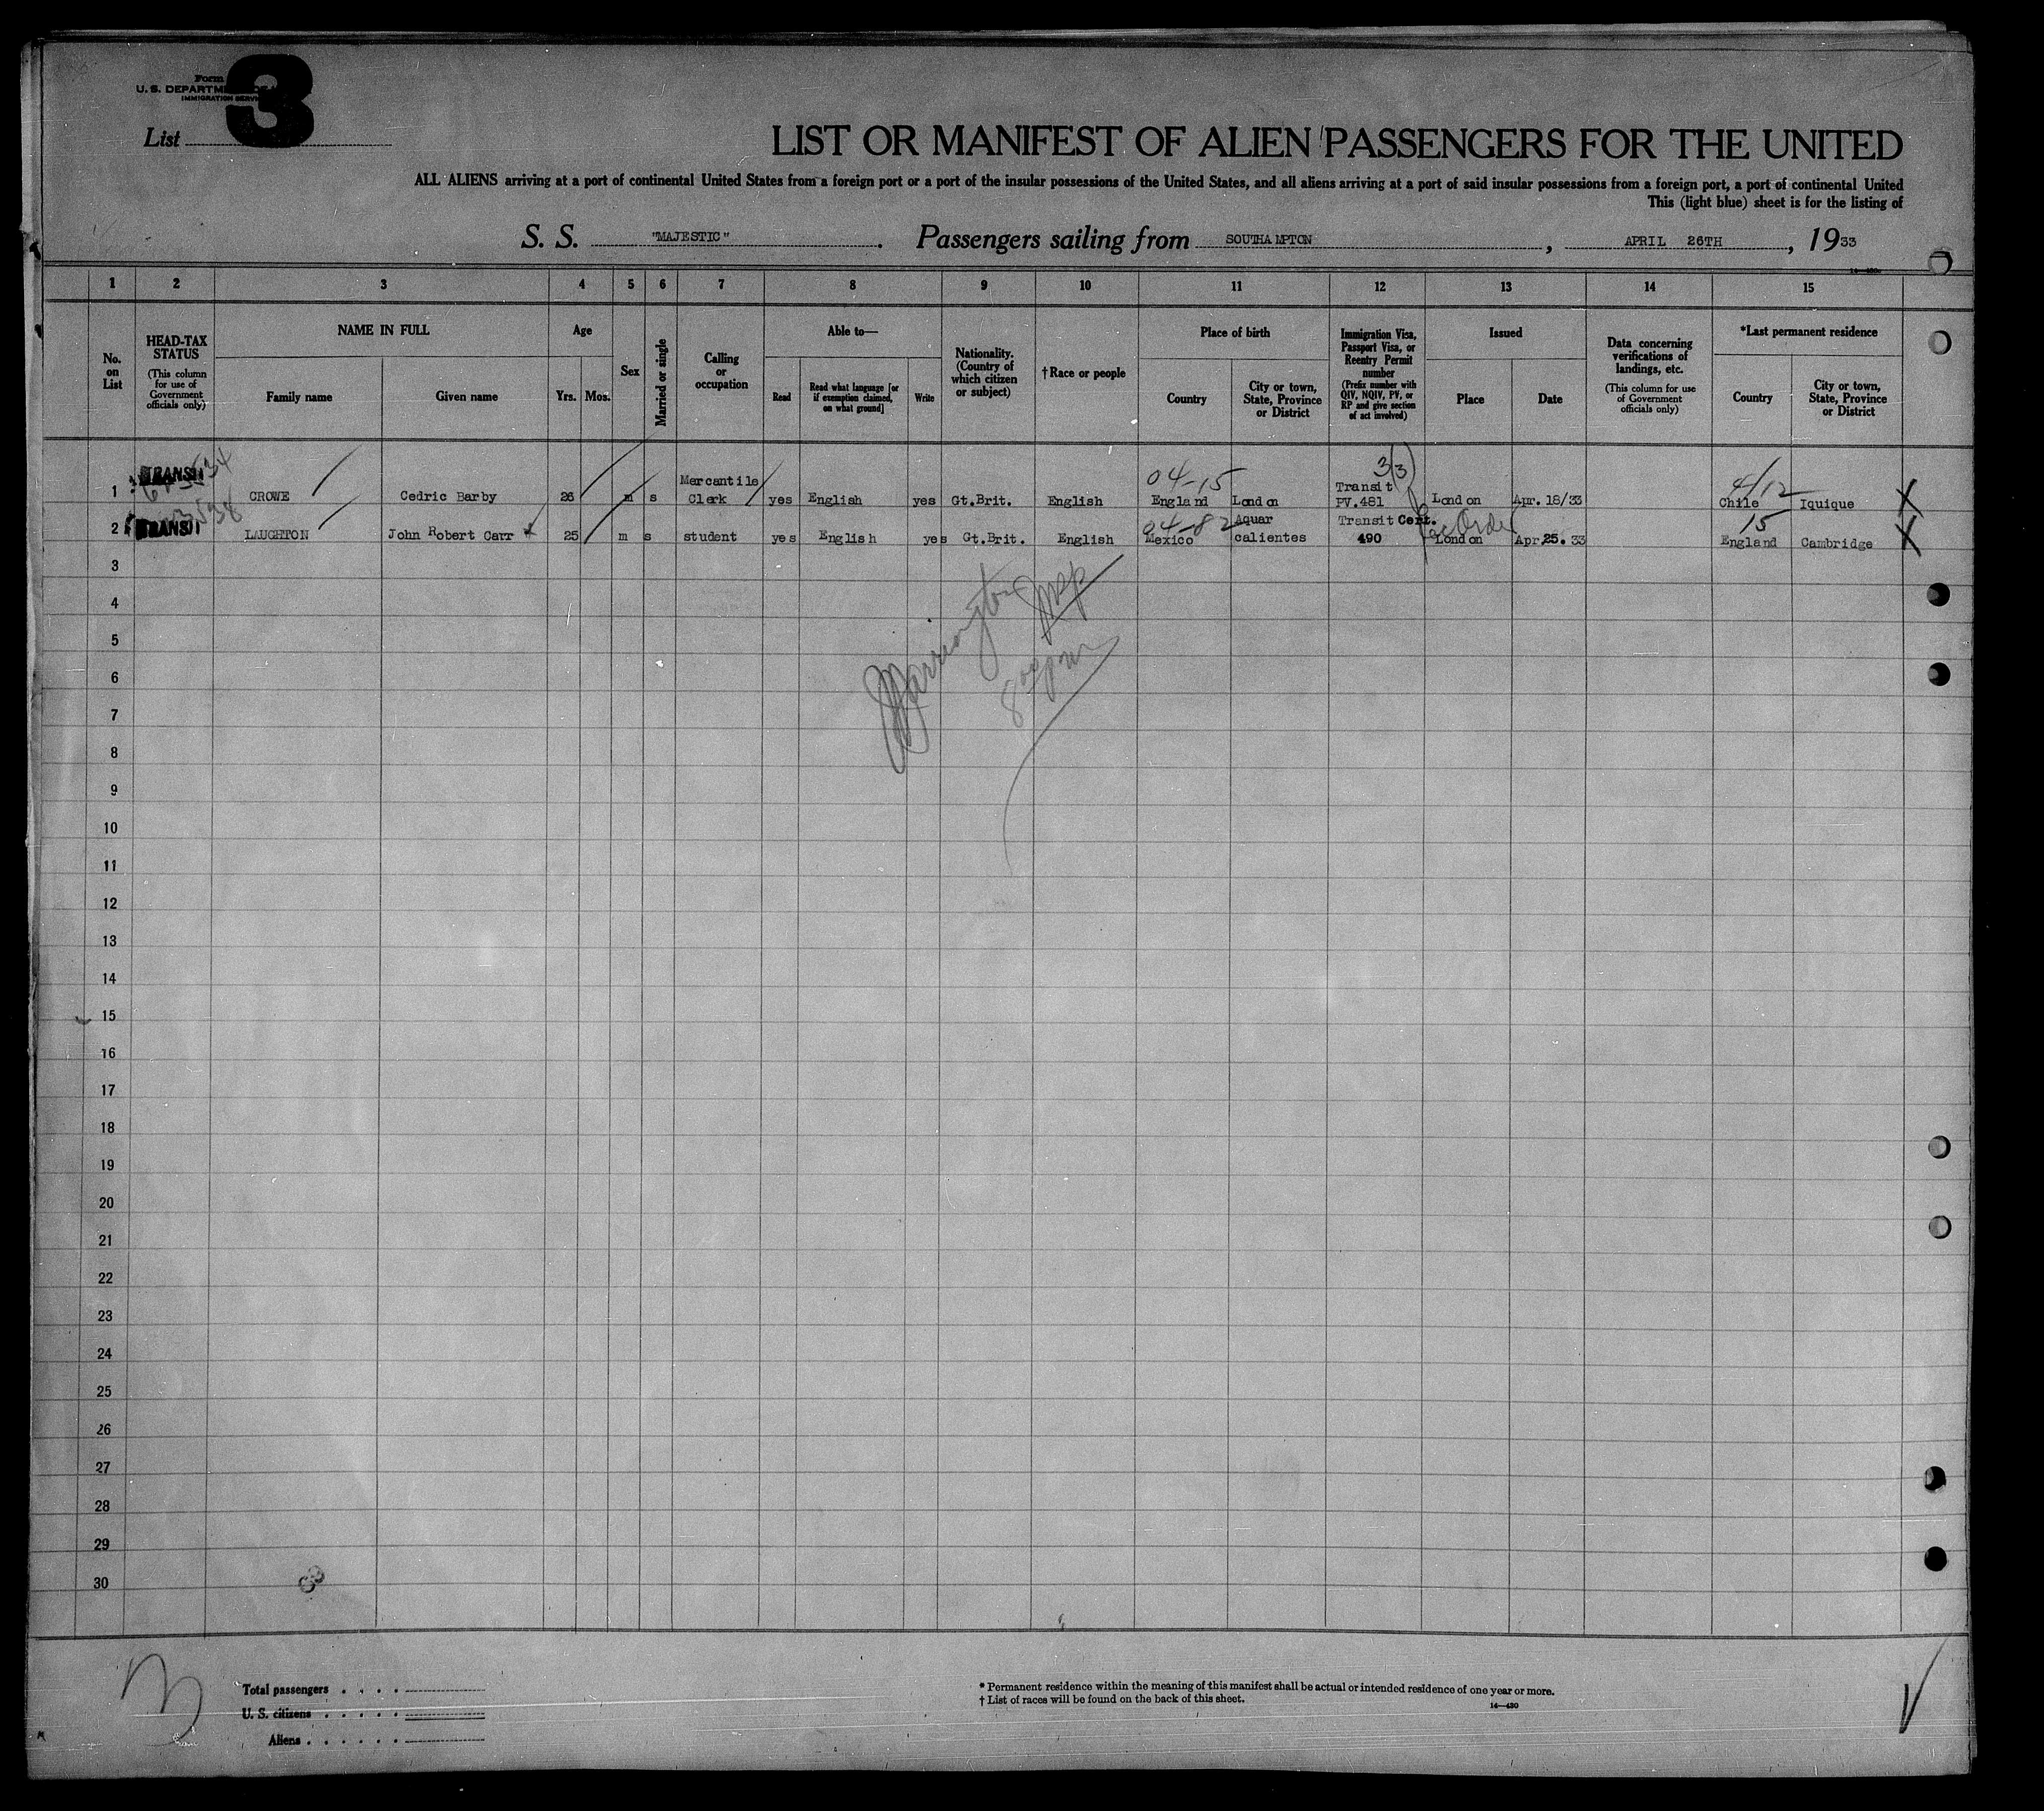 Form
U. S. DEPARTM
IMMIGRATION SERV
3
List
LIST OR MANIFEST OF ALIEN PASSENGERS FOR THE UNITED
ALL ALIENS arriving at a port of continental United States from a foreign port or a port of the insular possessions of the United States, and all aliens arriving at a port of said insular possessions from a foreign port, a port of continental United
This (light blue) sheet is for the listing of
S. S. "MAJESTIC". Passengers sailing from SOUTHAMPTON, APRIL 26TH, 1933
1 2 3 4 5 6 7 8 9 10 11 12 13 14 15
No. on List
HEAD-TAX STATUS (This column for use of Government officials only)
NAME IN FULL
Family name Given name
Age
Yrs. Mos.
Sex
Married or single
Calling or occupation
Able to—
Read Read what language [or if exemption claimed, on what ground] Write
Nationality. (Country of which citizen or subject)
†Race or people
Place of birth
Country City or town, State, Province or District
Immigration Visa, Passport Visa, or Reentry Permit number (Prefix number with QIV, NQIV, PV, or RP and give section of act involved)
Issued
Place Date
Data concerning verifications of landings, etc. (This column for use of Government officials only)
*Last permanent residence
Country City or town, State, Province or District
04-15 3(3) 4/12
1 TRANSIT CROWE Cedric Barby 26 m s Mercantile Clerk yes English yes Gt.Brit. English England London Transit PV.481 London Apr. 18/33 Chile Iquique X
04-82 15
2 TRANSIT LAUGHTON John Robert Carr 25 m s student yes English yes Gt.Brit. English Mexico Aquar calientes Transit Cert. 490 London Apr.25. 33 England Cambridge X
3
4
5
6
7
8
9
10
11
12
13
14
15
16
17
18
19
20
21
22
23
24
25
26
27
28
29
30
3
Total passengers
U. S. citizens
Aliens
* Permanent residence within the meaning of this manifest shall be actual or intended residence of one year or more.
† List of races will be found on the back of this sheet.
14—430